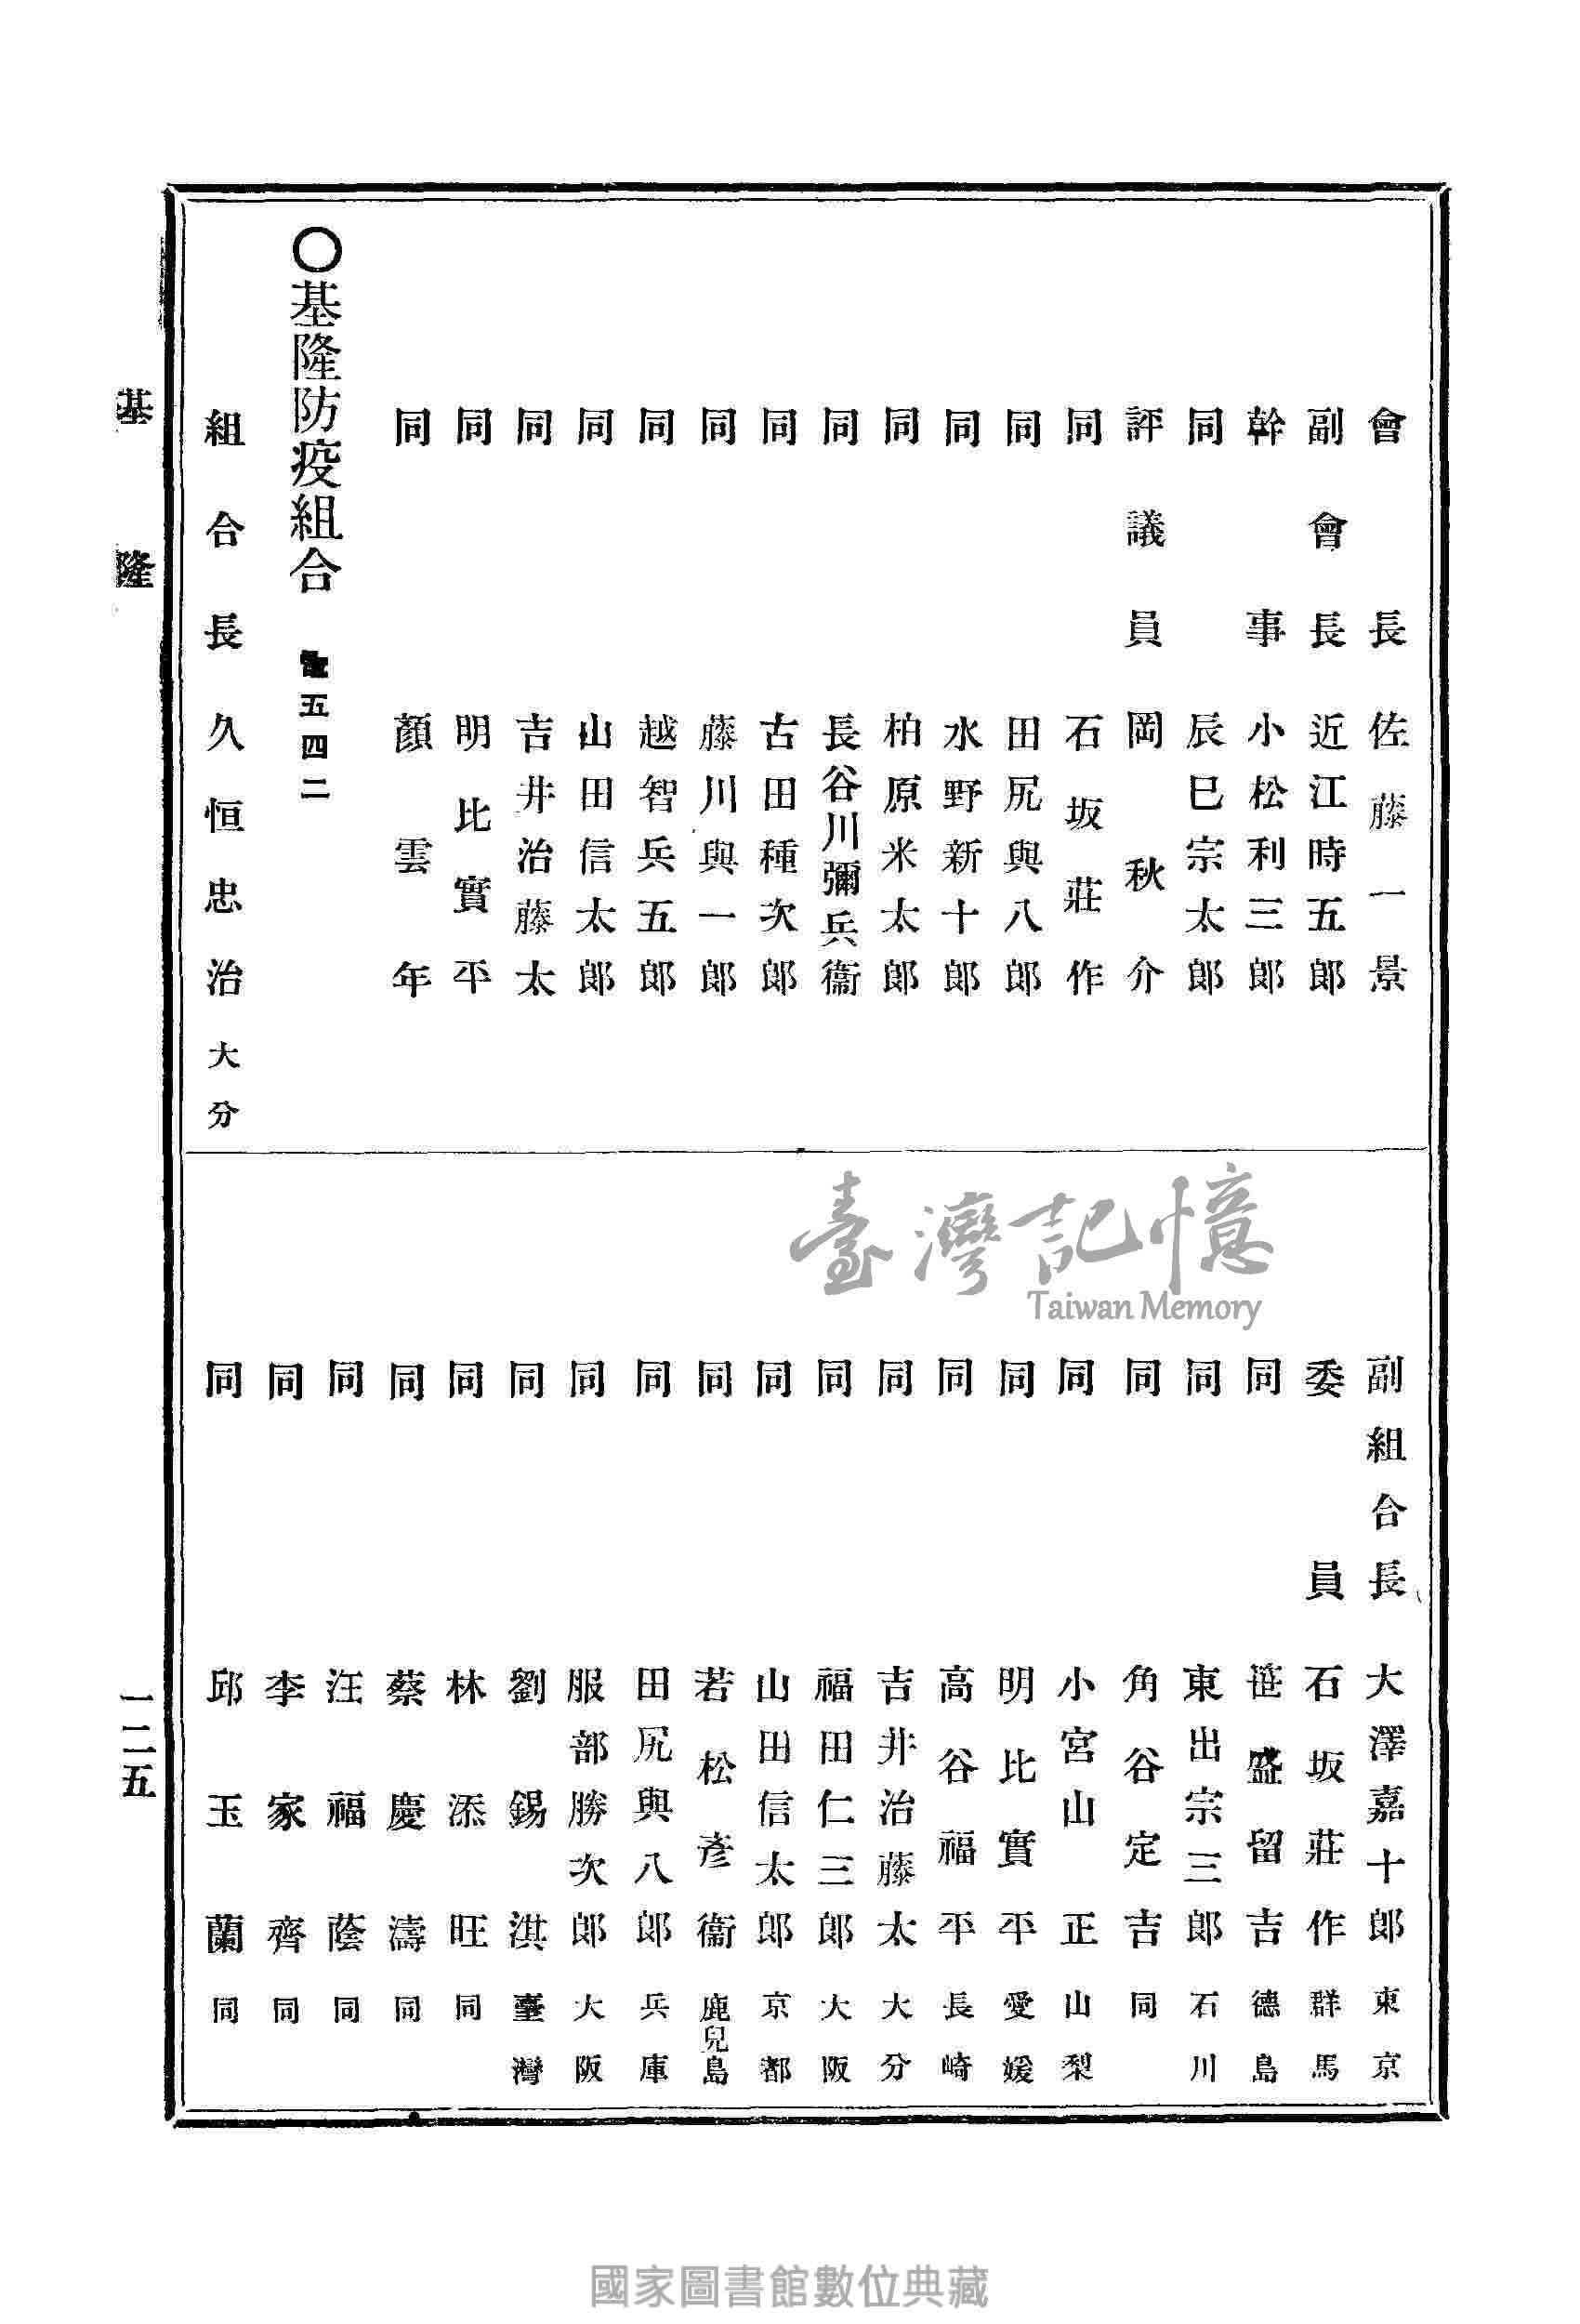 會長 佐藤一景
副會長 近江時五郎
幹事 小松利三郎
同 辰巳宗太郎
評議員 岡秋介
同 石坂莊作
同 田尻與八郎
同 水野新十郎
同 柏原米太郎
同 長谷川彌兵衞
同 古田種次郎
同 藤川與一郎
同 越智兵五郎
同 山田信太郎
同 吉井治藤太
同 明比實平
同 顏雲年
〇基隆防疫組合 五四二
組合長 久恒忠治 大分
副組合長 大澤嘉十郎 東京
委員 石坂莊作 群馬
同 笹盛留吉 德島
同 東出宗三郎 石川
同 角谷定吉 同
同 小宮山正 山梨
同 明比實平 愛媛
同 高谷福平 長崎
同 吉井治藤太 大分
同 福田仁三郎 大阪
同 山田信太郎 京都
同 若松彥衞 鹿兒島
同 田尻與八郎 兵庫
同 服部勝次郎 大阪
同 劉錫淇 臺灣
同 林添旺 同
同 蔡慶濤 同
同 汪福蔭 同
同 李家齊 同
同 邱玉蘭 同
基隆
一二五
臺灣記憶
Taiwan Memory
國家圖書館數位典藏